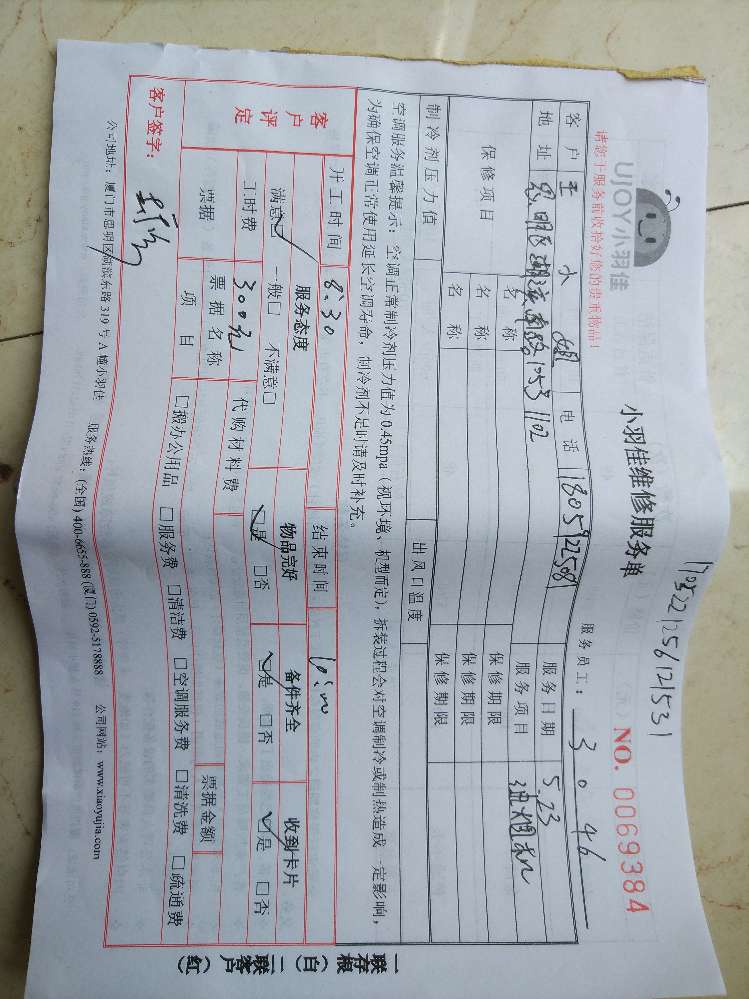 UJOY小羽佳
请您于服务前收拾好您的贵重物品！
小羽佳维修服务单
170522125612153 1
NO. 0069384
服务员工： 3046
客户 王小姐 电话 18059122508 服务日期 5.23
地址 思明区湖滨南路 1053 1102 服务项目 油烟机
保修项目 名称 保修期限
名称 保修期限
制冷剂压力值 出风口温度
空调服务温馨提示：空调正常制冷剂压力值为 0.45mpa（视环境、机型而定），拆装过程会对空调制冷或制热造成一定影响，
为确保空调正常使用延长空调寿命，制冷剂不足时请及时补充。
开工时间 8:30 结束时间 10:00
客户评定 服务态度 物品完好 备件齐全 收到卡片
满意☑ 一般☐ 不满意☐ ☑是 ☐否 ☑是 ☐否 ☑是 ☐否
工时费 300元 代购材料费
票据 票据名称 票据金额
项目 ☐搬办公用品 ☐服务费 ☐清洁费 ☐空调服务费 ☐清洗费 ☐疏通费
客户签字：
公司地址：厦门市思明区湖滨东路 319 号 A 幢小羽佳 服务热线：(全国) 400-6655-888 (厦门) 0592-5178888 公司网站：www.xiaoyujia.com
一联存根（白）二联客户（红）